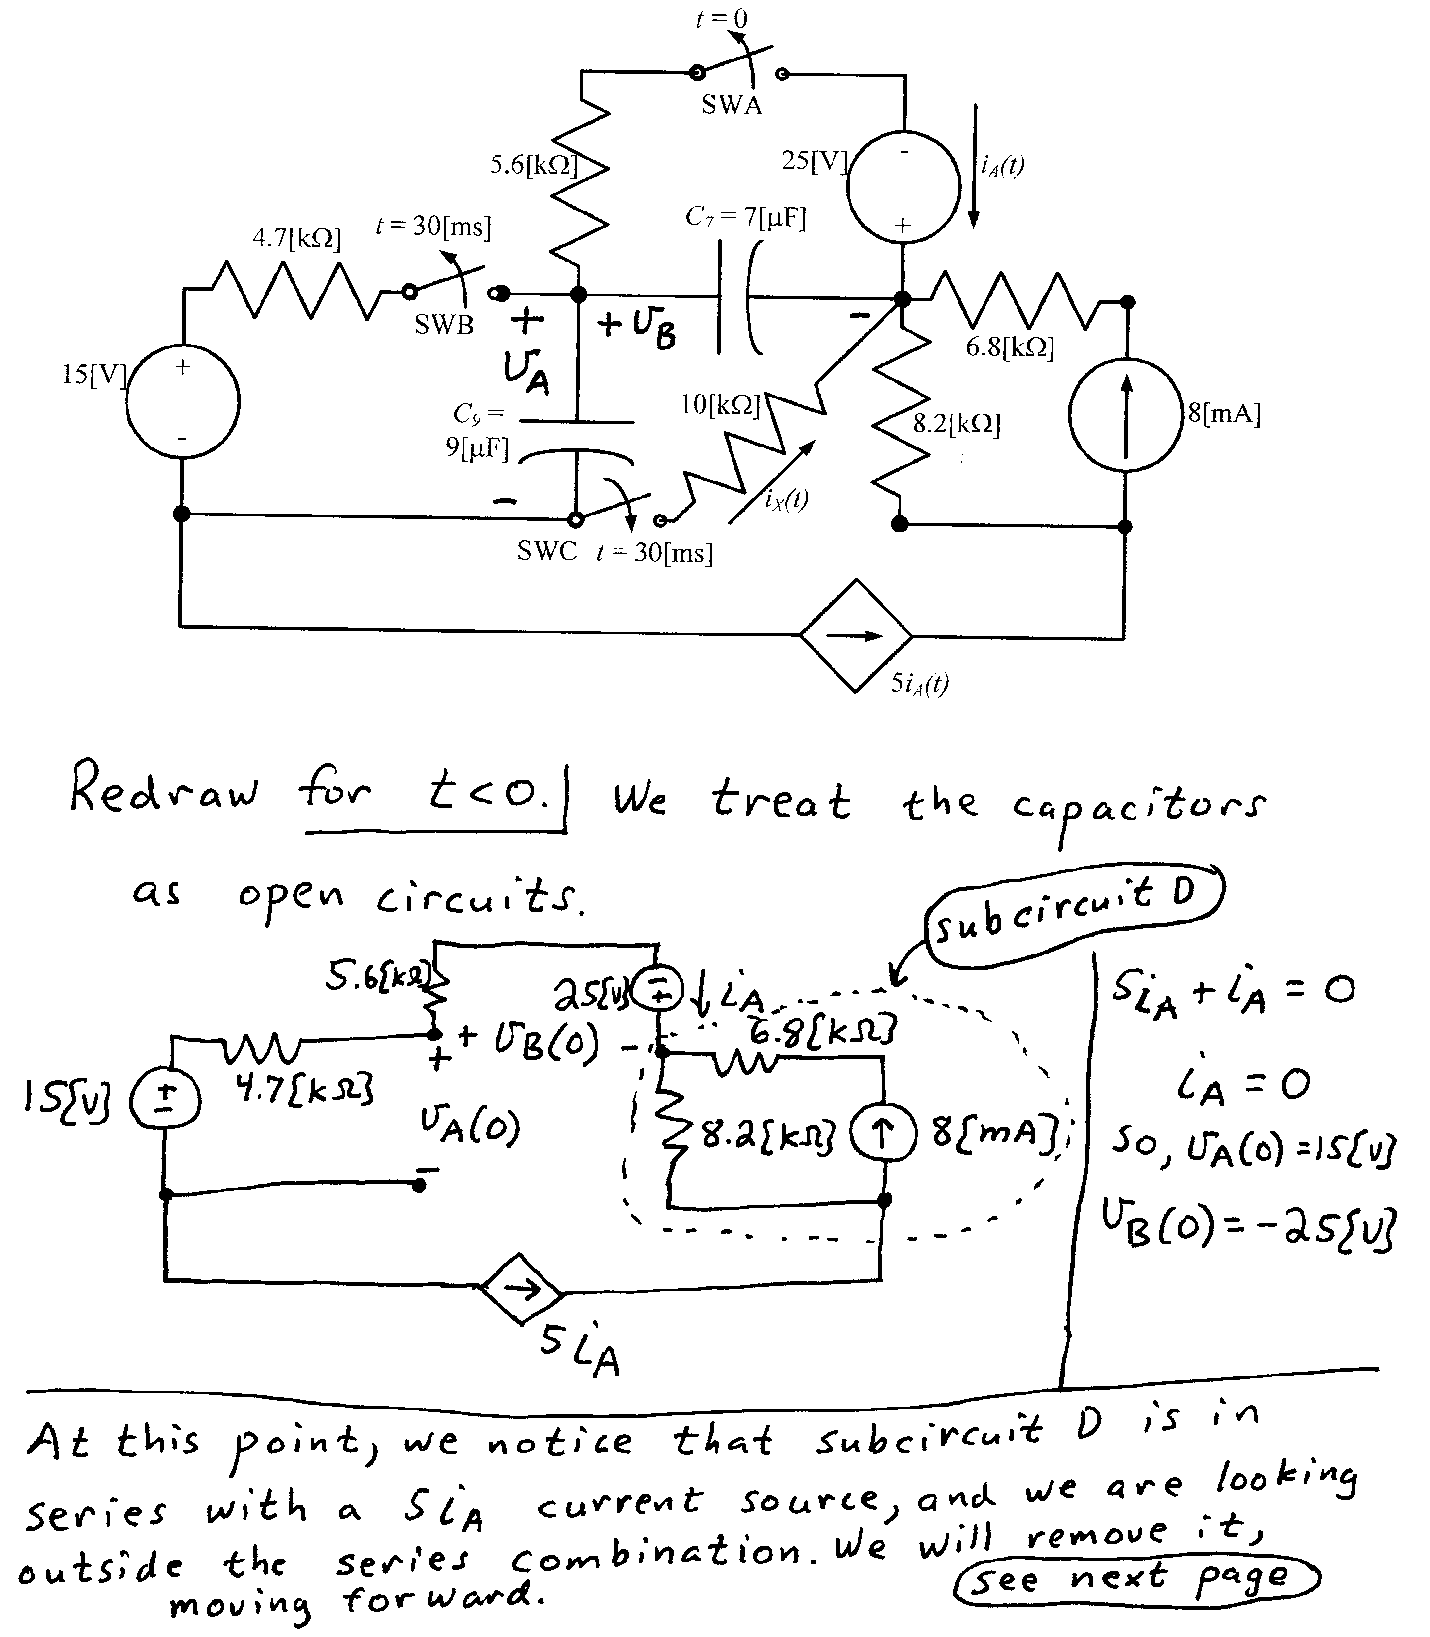 t = 0
SWA
5.6[kΩ]
25[V]
-
+
i_A(t)
C₇ = 7[μF]
t = 30[ms]
4.7[kΩ]
SWB
+
+ v_B
-
6.8[kΩ]
15[V]
+
-
v_A
C₉ =
9[μF]
10[kΩ]
8.2[kΩ]
8[mA]
-
i_X(t)
SWC t = 30[ms]
5i_A(t)
Redraw for t<0. We treat the capacitors
as open circuits.
subcircuit D
5.6[kΩ]
25[V]
-
+
i_A
5i_A + i_A = 0
+ v_B(0) -
6.8[kΩ]
15[V]
+
-
4.7[kΩ]
+
v_A(0)
-
8.2[kΩ]
8[mA]
i_A = 0
so, v_A(0) = 15[V]
v_B(0) = -25[V]
5 i_A
At this point, we notice that subcircuit D is in
series with a 5i_A current source, and we are looking
outside the series combination. We will remove it,
moving forward.
see next page